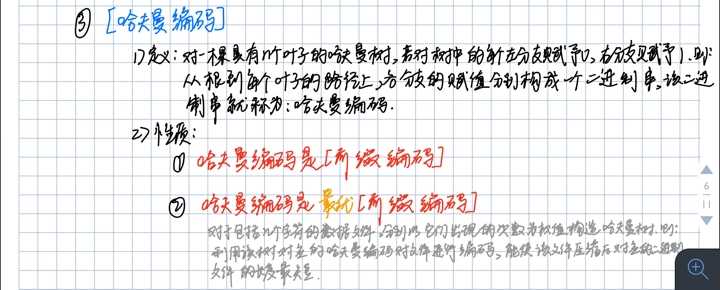 ③ [哈夫曼编码]
1) 定义：对一棵具有n个叶子的哈夫曼树，若对树中的每个左分支赋予0，右分支赋予1，则：
从根到每个叶子的路径上，各分支的赋值分别构成一个二进制串，该二进
制串就称为：哈夫曼编码.
2) 性质：
① 哈夫曼编码是[前缀编码]
② 哈夫曼编码是最优[前缀编码]
对于包括n个字符的数据文件，分别以它们出现的次数为权值构造哈夫曼树，则：
利用该树对应的哈夫曼编码对文件进行编码，能使该文件压缩后对应的二进制
文件的长度最短.
6
11